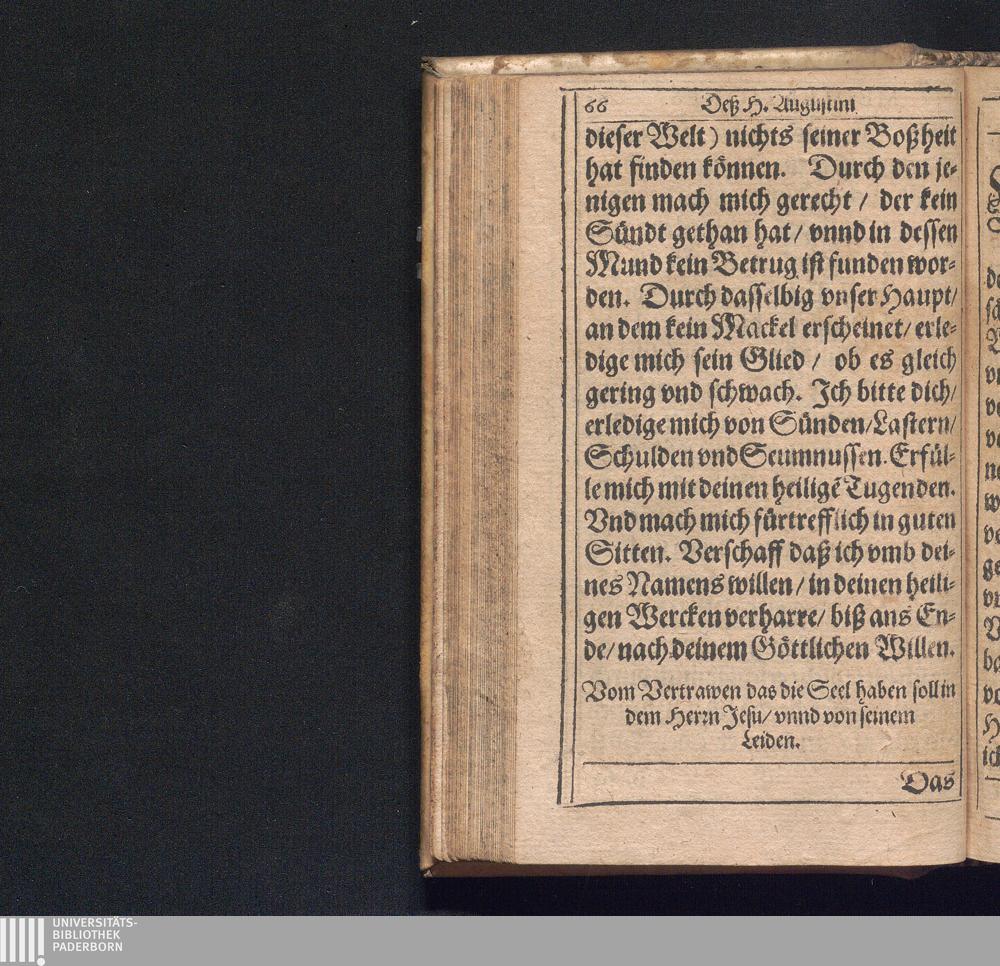 66 Deß H. Augustini
dieser Welt) nichts seiner Boßheit
hat finden können. Durch den je-
nigen mach mich gerecht / der kein
Sündt gethan hat / vnnd in dessen
Mund kein Betrug ist funden wor-
den. Durch dasselbig vnser Haupt /
an dem kein Mackel erscheinet / erle-
dige mich sein Glied / ob es gleich
gering vnd schwach. Ich bitte dich /
erledige mich von Sünden / Lastern /
Schulden vnd Seumnussen. Erfül-
le mich mit deinen heiligẽ Tugenden.
Vnd mach mich fürtrefflich in guten
Sitten. Verschaff daß ich vmb dei-
nes Namens willen / in deinen heili-
gen Wercken verharre / biß ans En-
de / nach deinem Göttlichen Willen.
Vom Vertrawen das die Seel haben soll in
dem Herrn Jesu / vnnd von seinem
Leiden.
Das
UNIVERSITÄTS-
BIBLIOTHEK
PADERBORN